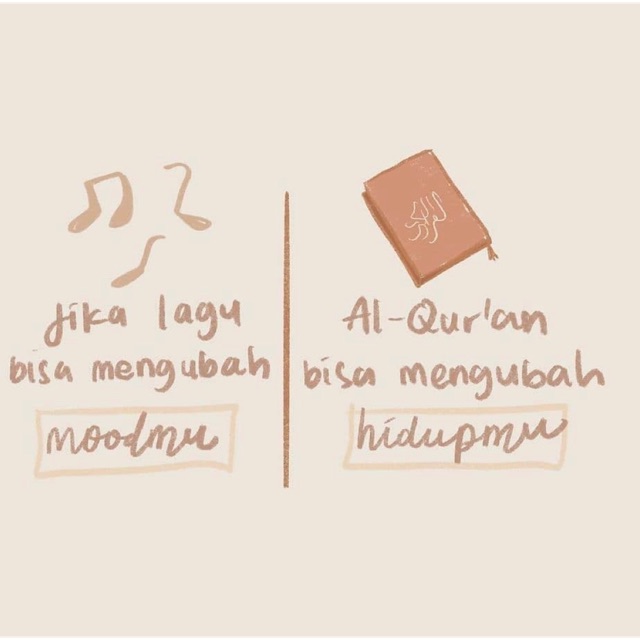 Jika lagu
bisa mengubah
moodmu
Al-Qur'an
bisa mengubah
hidupmu